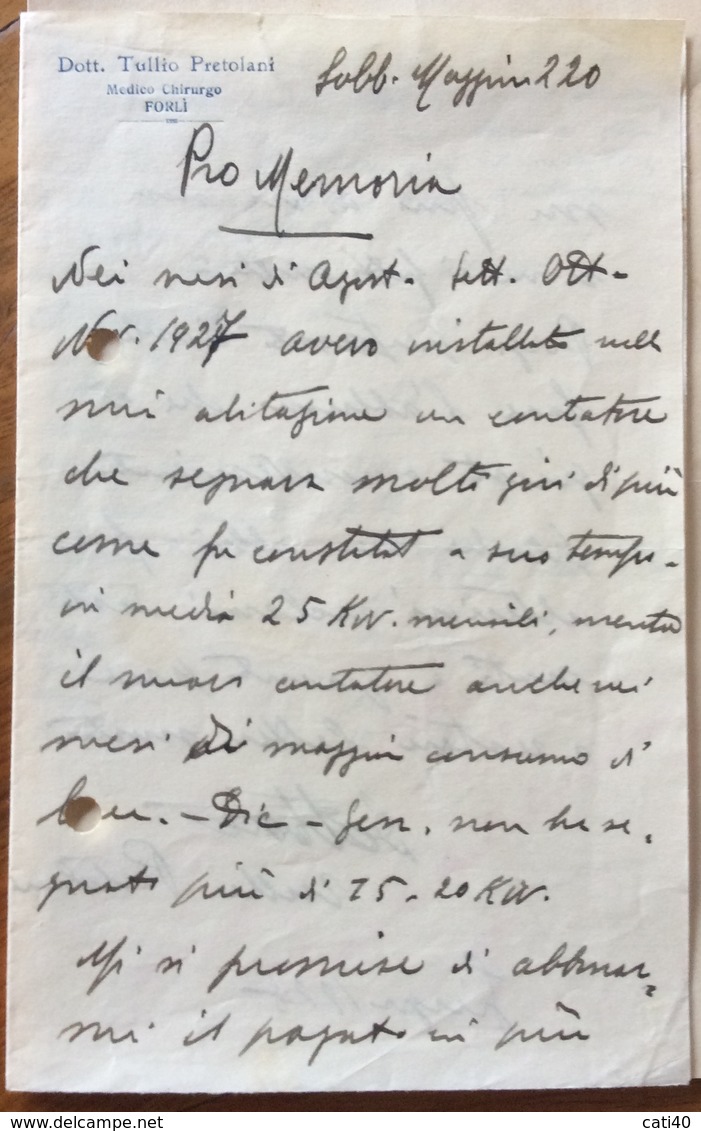 Dott. Tullio Pretolani
Medico Chirurgo
FORLÌ
Sobb. Mazzini 220
Pro Memoria
Nei mesi di Agost. Sett. Ott-
Nov. 1927 avevo installato nella
mia abitazione un contatore
che segnava molti giri di più
come fu constatato a suo tempo.
in media 25 Kw. mensili, mentre
il nuovo contatore anche nei
mesi di maggior consumo di
luce. - Dic - Gen. non ha se.
gnato più di 15-20 Kw.
Mi si promise di abbonar=
mi il pagato in più
cati40